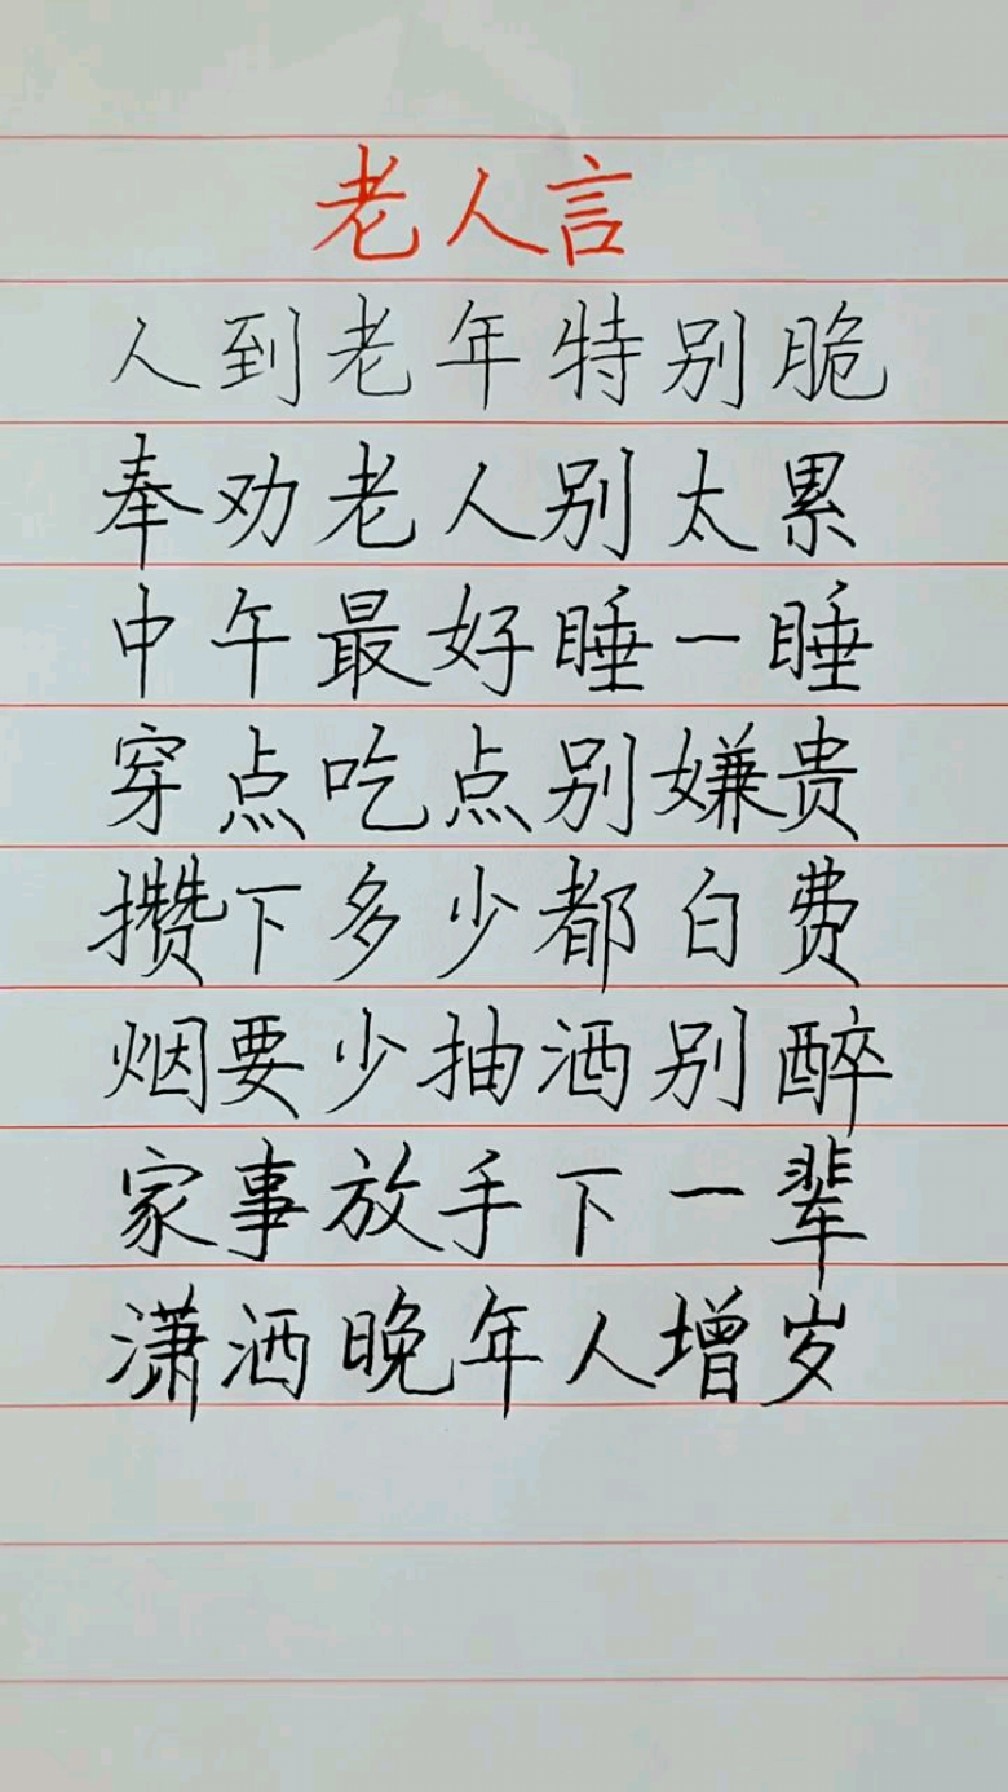 老人言
人到老年特别脆
奉劝老人别太累
中午最好睡一睡
穿点吃点别嫌贵
攒下多少都白费
烟要少抽酒别醉
家事放手下一辈
潇洒晚年人增岁